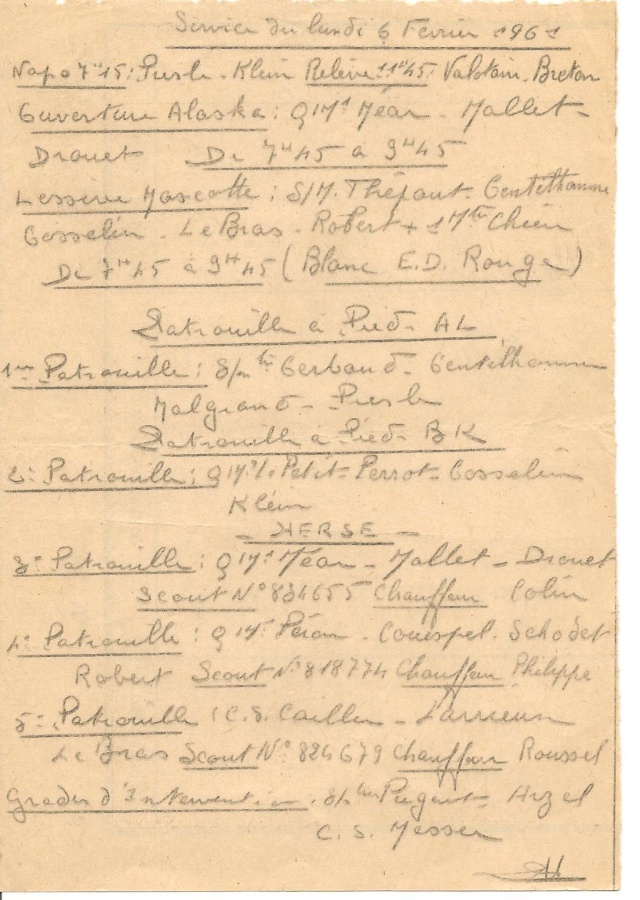 Service du lundi 6 Fevrier 1961
Napo 7H15: Piesle - Klein Relève 11H45: Valotain. Breton
Ouverture Alaska: QM1 Méar - Mallet -
Drouet De 7H45 à 9H45
Lessive Mascotte: S/M. Thépaut - Gentilhomme
Gosselin - Le Bras - Robert + 1 Mtre Chien
De 7H45 à 9H45 (Blanc E.D. Rouge)
Patrouille à Pied - AL
1ere Patrouille: Gerbaud - Gentilhomme
Malgrand - Piesle
Patrouille à Pied - BK
2e Patrouille: Petit - Perrot - Gosselin
Klein
- HERSE -
3e Patrouille: QM1 Méar - Mallet - Drouet
Scout N° 834655 Chauffeur Colin
4e Patrouille: QM1 Péran - Couespel - Schodet
Robert Scout N° 818774 Chauffeur Philippe
5e Patrouille: C.S. Cailler - Larrieun
Le Bras Scout N° 824679 Chauffeur Roussel
Grades d'Intervention: Arzel
C.S. Messer